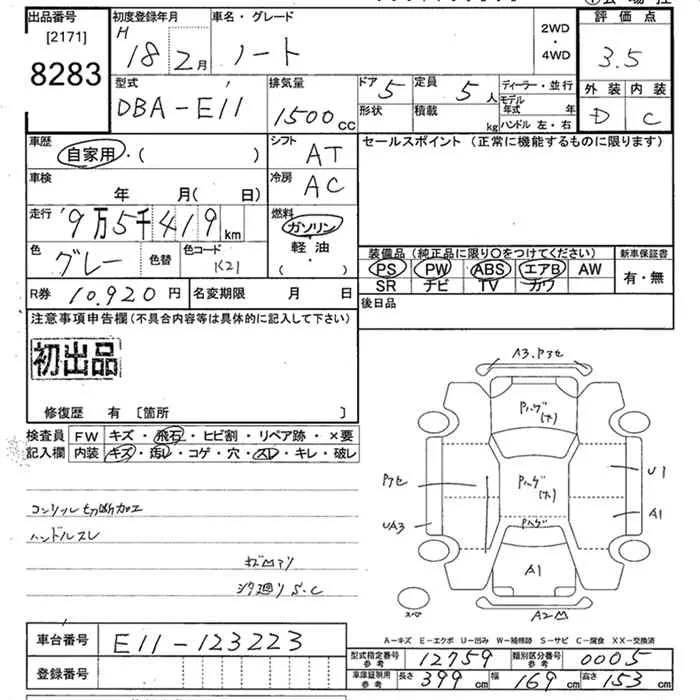 出品番号
[2171]
8283
初度登録年月
H 18 2月
車名・グレード
ノート
2WD
・
4WD
評価点
3.5
外装 内装
D C
型式
DBA-E11
排気量
1500 cc
ドア 5
定員 5 人
ディーラー・並行
形状
積載 kg
モデル年式 年
ハンドル 左・右
車歴
自家用・( )
シフト
AT
セールスポイント (正常に機能するものに限ります)
車検
年 月( 日)
冷房
AC
走行 '9万5千419km
燃料
ガソリン
軽・油
( ・ )
色 グレー 色替 色コード K21
装備品 (純正品に限り○をつけてください)
新車保証書
PS PW ABS エアB AW
有・無
SR ナビ TV カワ
R券 10,920円
名変期限 月 日
後日品
注意事項申告欄 (不具合内容等は具体的に記入して下さい)
初出品
修復歴 有 [箇所 ]
検査員 FW キズ・飛石・ヒビ割・リペア跡・×要
記入欄 内装 キズ・汚レ・コゲ・穴・スレ・キレ・破レ
コンソール切断加工
ハンドルスレ
シタ廻りS.C
A3.Pアセ
Pハゲ
(ホ)
Pアセ
Pハゲ
(ホ)
U1
UA3
Pハゲ
A1
A1
スペア
A2凹
A-キズ E-エクボ U-凹み W-補修跡 S-サビ C-腐食 XX-交換済
車台番号 E11-123223
型式指定番号 参考 12759
類別区分番号 参考 0005
登録番号
車庫証明用 参考 長さ 399cm 幅 169cm 高さ 153cm